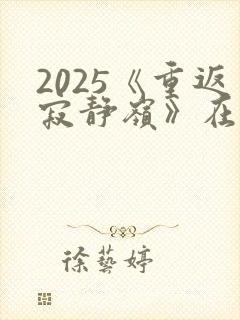 2025《重返
寂静嶺》在
徐藝婷